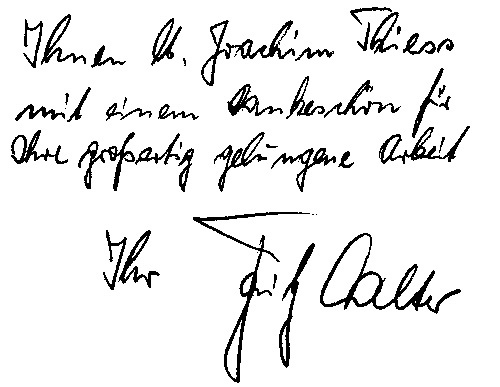 Ihnen lb. Joachim Thiess
mit einem Dankeschön für
Ihre großartig gelungene Arbeit
Ihr Fritz Walter